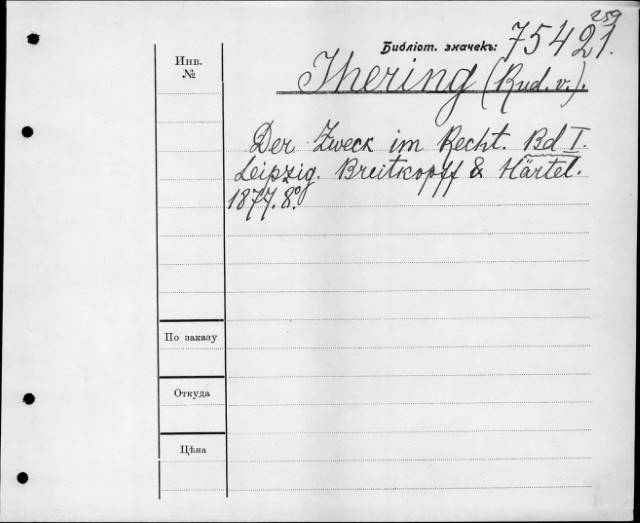 259
Библіот. значекъ: 75421.
Инв.
№
Jhering (Rud. v.).
Der Zweck im Recht. Bd I.
Leipzig. Breitkopff & Härtel.
1877. 8º.
По заказу
Откуда
Цѣна